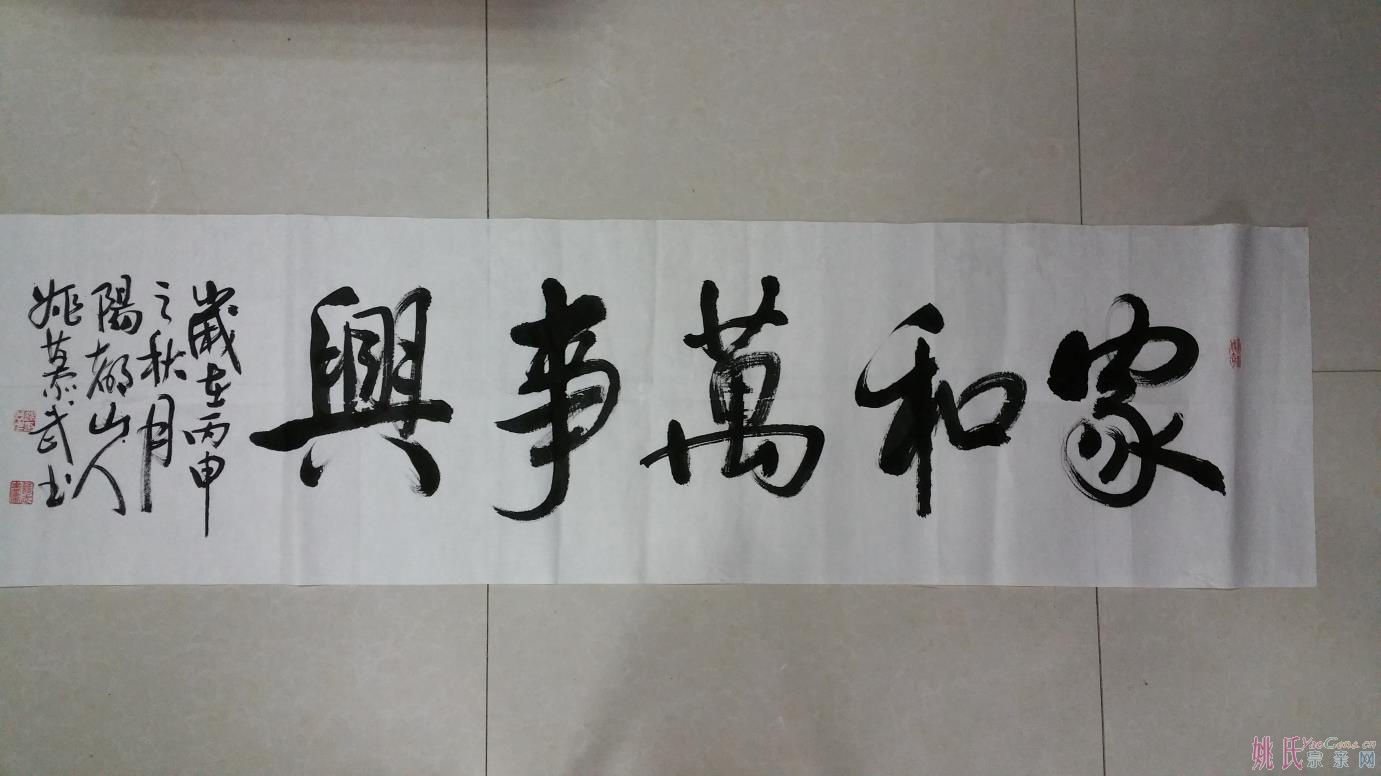 家和萬事興
歲在丙申
之秋月
陽都山人
姚慕武书
姚氏 YaoGens.cn
宗亲网